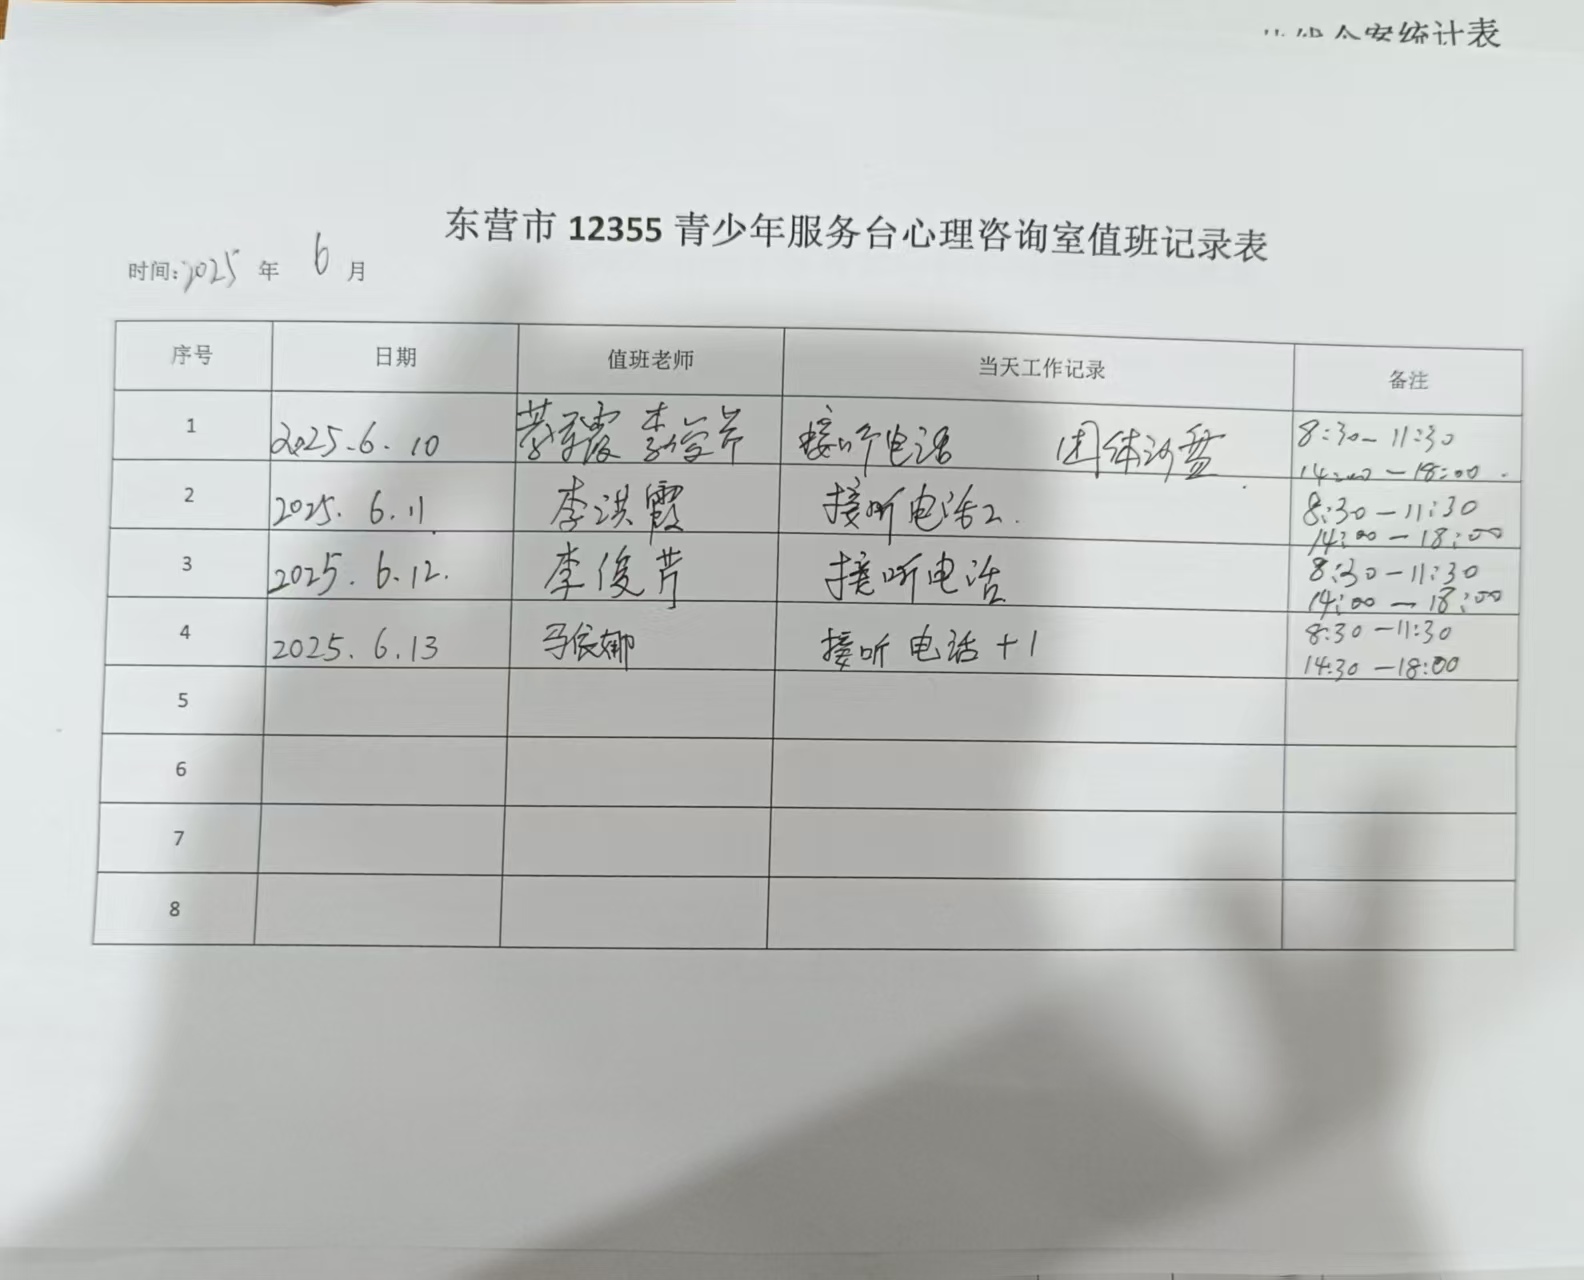 统计表
东营市 12355 青少年服务台心理咨询室值班记录表
时间:2025 年 6 月
序号 日期 值班老师 当天工作记录 备注
1 2025.6.10 接听电话 团体沙盘 8:30-11:30
14:00-18:00.
2 2025.6.11 李洪霞 接听电话2. 8:30-11:30
14:00-18:00
3 2025.6.12. 李俊芹 接听电话 8:30-11:30
14:00-18:00
4 2025.6.13 马依娜 接听电话+1 8:30-11:30
14:30-18:00
5
6
7
8